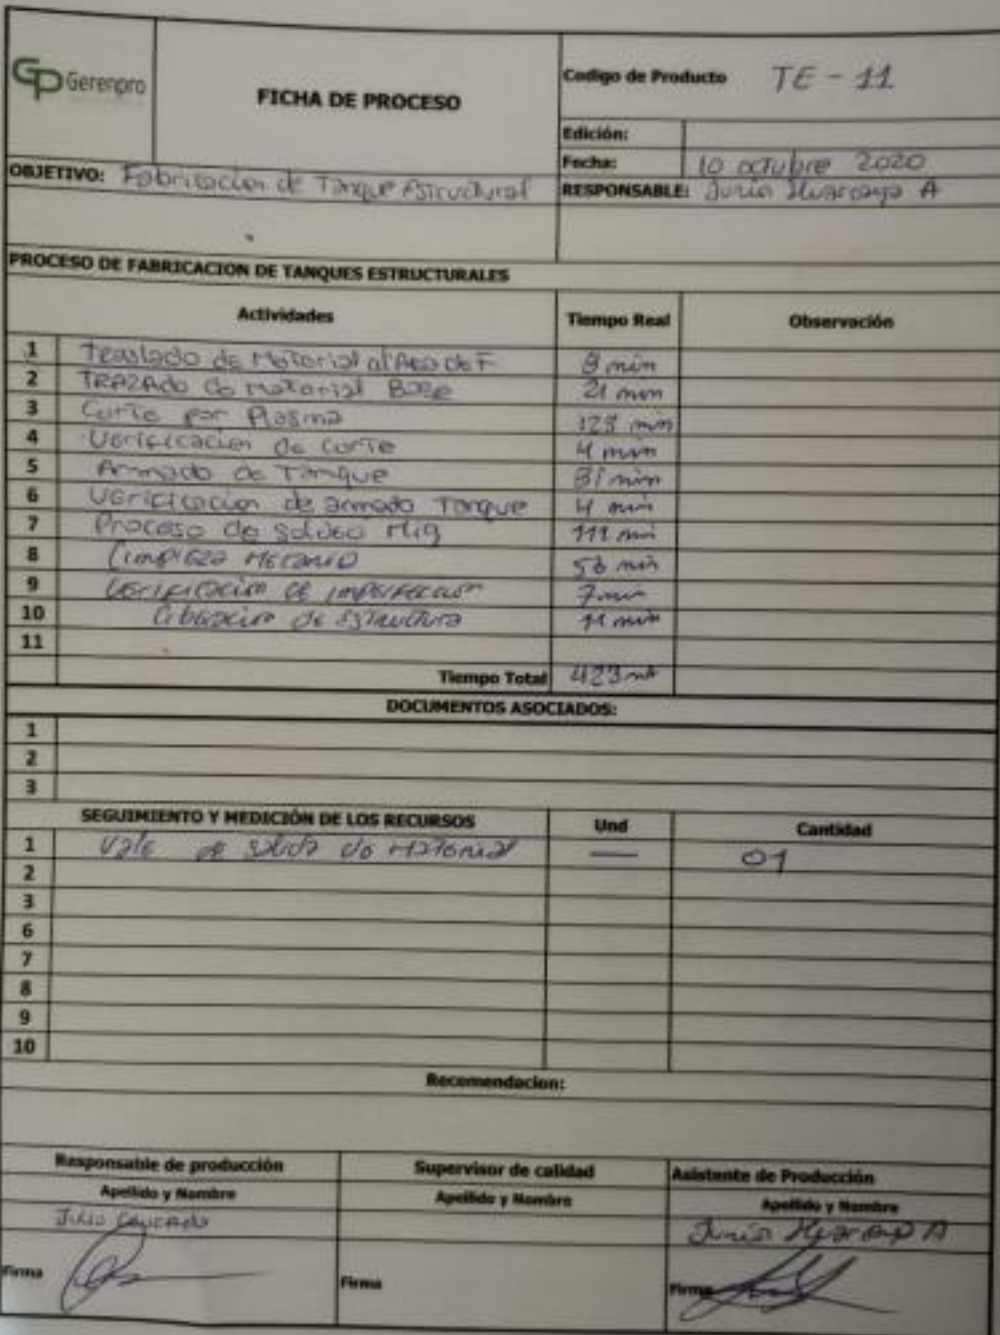 GP Gerenpro
FICHA DE PROCESO
Codigo de Producto TE - 11
Edición:
Fecha: 10 octubre 2020
OBJETIVO: Fabricacion de Tanque Estructural
RESPONSABLE: Junior Huarcaya A
PROCESO DE FABRICACION DE TANQUES ESTRUCTURALES
Actividades Tiempo Real Observación
1 Traslado de Material al Area de F
2 TRAZADO de Material Base 21 min
3 Corte por Plasma
4 Verificacion de Corte 4 min
5 Armado de Tanque 81 min
6 Verificacion de armado Tanque 4 min
7 Proceso de Mig 111 min
8 Limpieza
9 Verificacion de imperfeccion 7 min
10 Liberacion de Estructura 11 min
11
Tiempo Total
DOCUMENTOS ASOCIADOS:
1
2
3
SEGUIMIENTO Y MEDICIÓN DE LOS RECURSOS Und Cantidad
1 Vale de Salida de Material — 01
2
3
6
7
8
9
10
Recomendacion:
Responsable de producción Supervisor de calidad Asistente de Producción
Apellido y Nombre Apellido y Nombre Apellido y Nombre
Julio Junior Huarcaya A
Firma Firma Firma